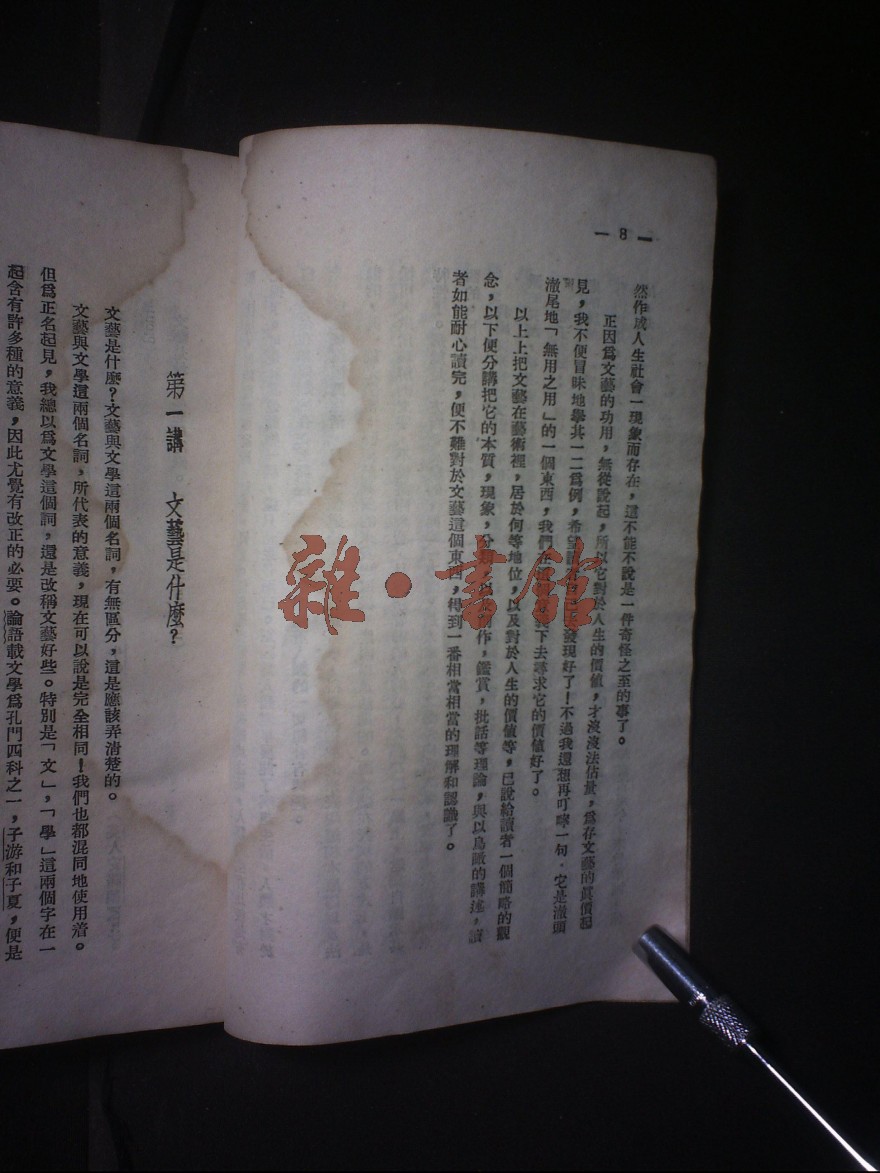 — 8 —
然作成人生社會一現象而存在，這不能不說是一件奇怪之至的事了。
正因爲文藝的功用，無從說起，所以它對於人生的價値，才沒沒法估量，爲存文藝的眞價起
見，我不便冒昧地舉其一二爲例，希望發現好了！不過我還想再叮嚀一句．它是澈頭
澈尾地「無用之用」的一個東西，我們下去尋求它的價値好了。
以上上把文藝在藝術裡，居於何等地位，以及對於人生的價値等，已說給讀者一個簡略的觀
念，以下便分講把它的本質，現象，分作，鑑賞，批話等理論，與以鳥瞰的講述，讀
者如能耐心讀完，便不難對於文藝這個東西，得到一番相當相當的理解和認識了。
雜·書館
第一講　文藝是什麼？
文藝是什麼？文藝與文學這兩個名詞，有無區分，這是應該弄清楚的。
文藝與文學這兩個名詞，所代表的意義，現在可以說是完全相同！我們也都混同地使用着。
但爲正名起見，我總以爲文學這個詞，還是改稱文藝好些。特別是「文」，「學」這兩個字在一
起含有許多種的意義，因此尤覺有改正的必要。論語載文學爲孔門四科之一，子游和子夏，便是